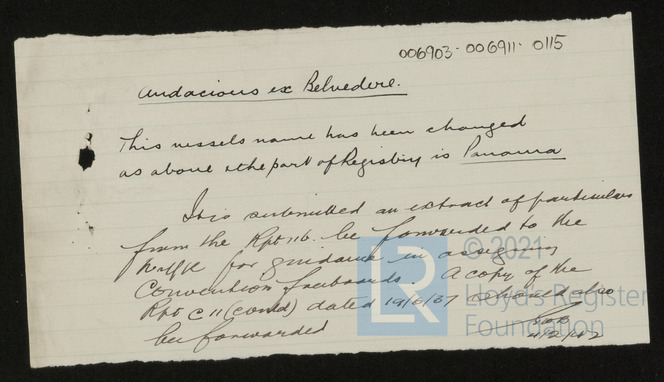 006903-006911-0115
Audacious ex Belvedere.
This vessels name has been changed
as above & the port of Registry is Panama
It is submitted an extract of particulars
from the Rpt 11b. be forwarded to the
for guidance in assigning
Convention freeboards. A copy of the
Rpt C 11 (contd) dated 19/6/37 should also
be forwarded
LR
© 2021
Lloyd's Register
Foundation